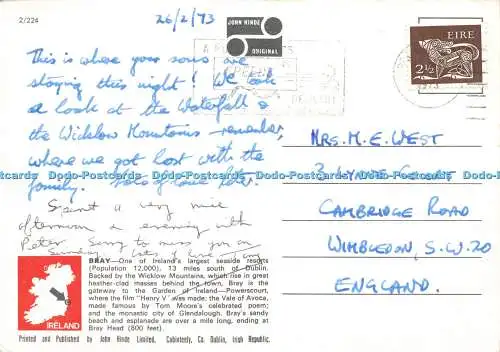 2/224
26/2/73
JOHN HINDE
ORIGINAL
EIRE
2½
This is where your sons are
staying this night! We took
a look at the Waterfall &
the Wicklow Mountains - remember,
where we got lost with the
family. Lots of love
Spent a very nice
afternoon & evening with
Peter. Sorry to miss you on
Sunday. Lots of love
MRS. M. E. WEST
CAMBRIDGE ROAD
WIMBLEDON, S.W.20
ENGLAND.
Dodo-Postcards Dodo-Postcards Dodo-Postcards Dodo-Postcards
IRELAND
BRAY—One of Ireland's largest seaside resorts
(Population 12,000), 13 miles south of Dublin.
Backed by the Wicklow Mountains, which rise in great
heather-clad masses behind the town, Bray is the
gateway to the Garden of Ireland—Powerscourt,
where the film "Henry V" was made; the Vale of Avoca,
made famous by Tom Moore's celebrated poem;
and the monastic city of Glendalough. Bray's sandy
beach and esplanade are over a mile long, ending at
Bray Head (800 feet).
Printed and Published by John Hinde Limited, Cabinteely, Co. Dublin, Irish Republic.